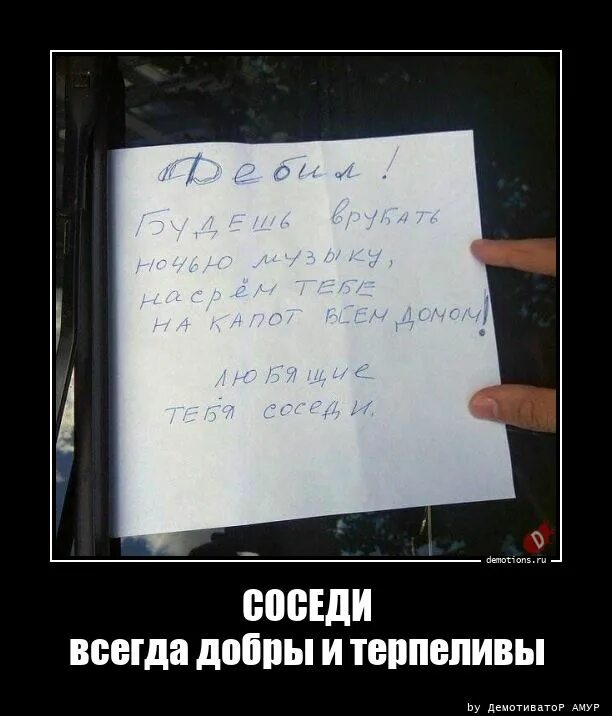 Дебил!
БУДЕШЬ ВРУБАТЬ
НОЧЬЮ МУЗЫКУ,
насрём ТЕБЕ
НА КАПОТ ВСЕМ ДОМОМ!
ЛЮБЯЩИЕ
ТЕБЯ СОСЕДИ.
D
demotions.ru
СОСЕДИ
всегда добры и терпеливы
by ДемотиватоР АМУР